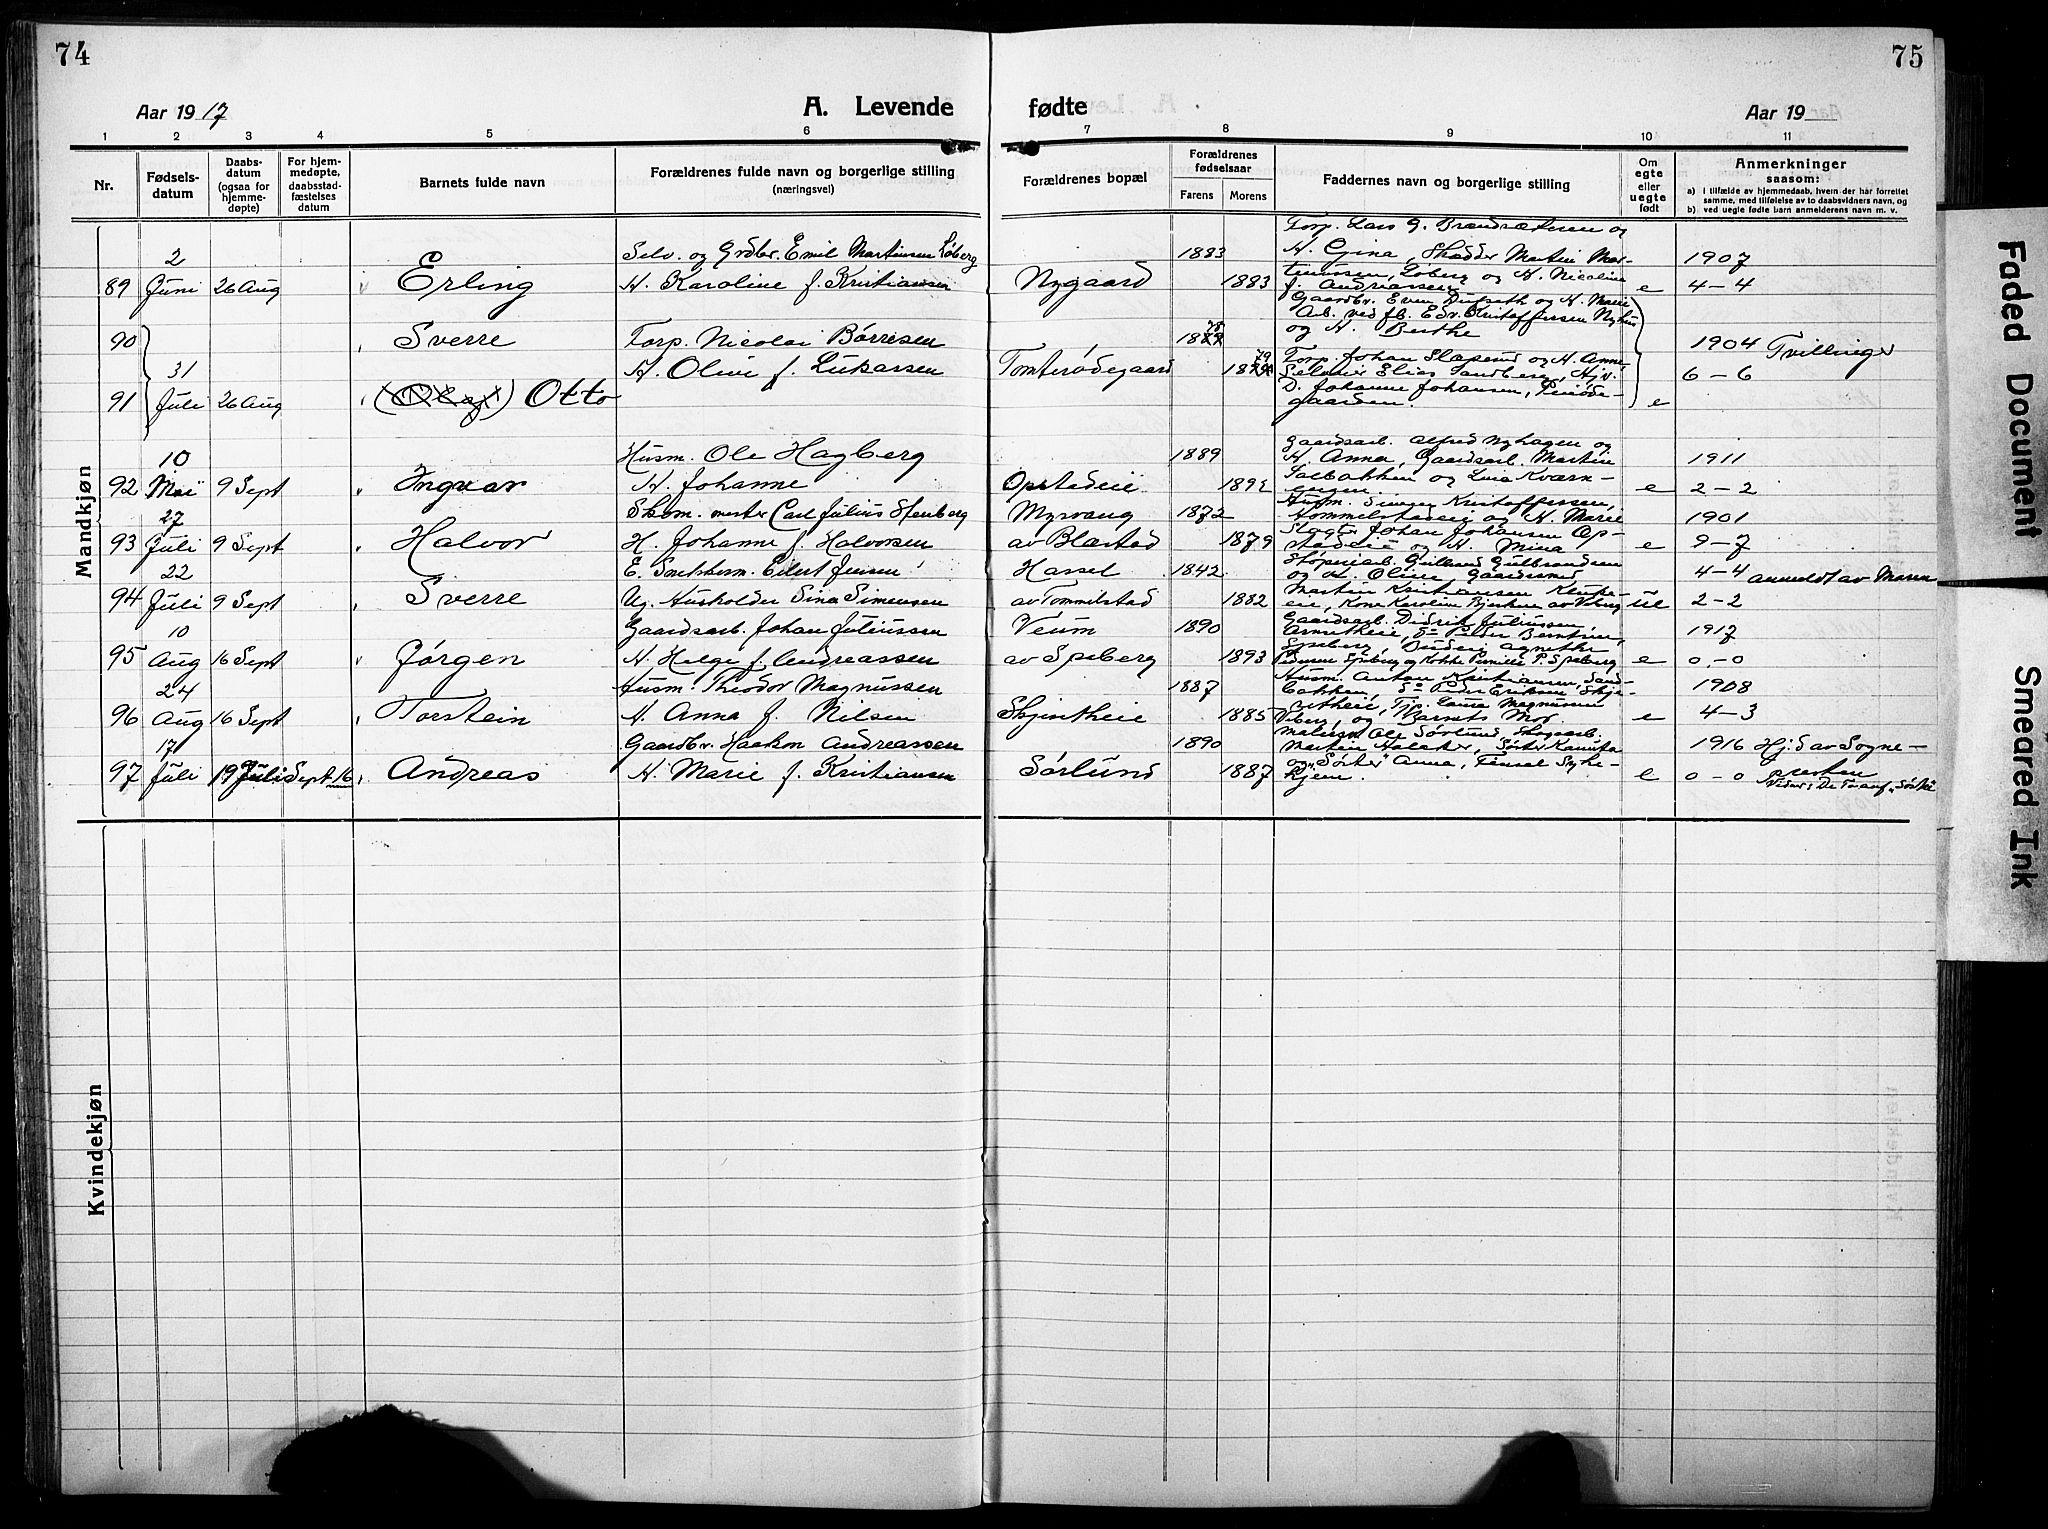 74
75
Aar 1917
A. Levende
fødte
Aar 19
1 2 3 4 5 6
7 8 9 10 11
Nr.
Fødsels-
datum
Daabs-
datum
(ogsaa for
hjemme-
døpte)
For hjem-
medøpte,
daabsstad-
fæstelses
datum
Barnets fulde navn
Forældrenes fulde navn og borgerlige stilling
(næringsvei)
Forældrenes bopæl
Forældrenes
fødselsaar
Farens Morens
Faddernes navn og borgerlige stilling
Om
egte
eller
uegte
født
Anmerkninger
saasom:
a) i tilfælde av hjemmedaab, hvem der har forrettet
samme, med tilføielse av to daabsvidners navn, og
b) ved uegte fødte barn anmelderens navn m. v.
Mandkjøn
2 Selv. og Grdbr. Emil Martinsen Løberg 1883 Torp. Lars G. Brændsæteren og H. Gina, Skrædder Martin Mar- 1907
89 Juni 26 Aug Erling H. Karoline f. Kristiansen Nygaard 1883 tinussen, Løberg og H. Nicoline f. Andreassen e 4-4
Gaardbr. Even Dufseth og H. Marie
Arb. ved jb. Edv. Kristoffersen Nyhus
90 Sverre Torp. Nicolai Børresen 1878 og H. Berthe 1904 Tvillinger
31 H. Oline f. Lukassen Tomterødegaard 1879 Torp. Johan Slapsrud og H. Anne, 6-6
Selveier Elias Sandberg, Hjv.
91 Juli 26 Aug (Olaf) Otto D. Johanne Johansen,
gaarden. e
10 Husm. Ole Hagberg 1889 Gaardsarb. Alfred Nyhagen og H. Anna, Gaardsarb. Martin 1911
92 Mai 9 Sept Ingvar H. Johanne Opstadeie 1892 Salbakken og Lina Kværn-
engen e 2-2
27 Skom. mester Carl Julius Stenberg Myrvang 1872 Husm. Simen Kristoffersen, Hommelstadeie og H. Marie 1901
93 Juli 9 Sept Halvor H. Johanne f. Halvorsen av Blæstad 1879 Slagter Johan Johansen Op-
stadeie og H. Mina e 9-7
22 E. Smelsherm. Eilert Jensen Hassel 1842 Støperiarb. Gulbrand Gulbrandsen og H. Oline Gaardssmed 4-4 anmeldt av Moren
94 Juli 9 Sept Sverre Ug. Husholder Sina Simensen av Tommelstad 1882 Martin Kristiansen
eie, Kone Karoline av Viberg ue 2-2
10 Gaardsarb. Johan Juliussen Veum 1890 Gaardsarb. Didrik Juliussen, 1917
95 Aug 16 Sept Jørgen H. Helga f. Andreassen av Spsberg 1893 Pedersen Spsberg og Kokke Pernille P. Spsberg e 0-0
24 Husm. Theodor Magnussen 1887 Husm. Anton Kristiansen, Sand-
bakken, Sn Peder Eriksen Skje- 1908
96 Aug 16 Sept Torstein H. Anna f. Nilsen Skjeseteie 1885 Laura Magnussen
Viberg, og Barnets Mor e 4-3
17 Gaardbr. Haakon Andreassen 1890 Maleren Ole Sørlund, Skogsarb. Martin 1916 Hjd av Sogne-
97 Juli 19 Juli Sept 16 Andreas H. Marie f. Kristiansen Sørlund 1887 og "Søster" Anna, Tinsel Syke-
hjem. e 0-0 presten
Kvindekjøn
Faded Document
Smeared Ink